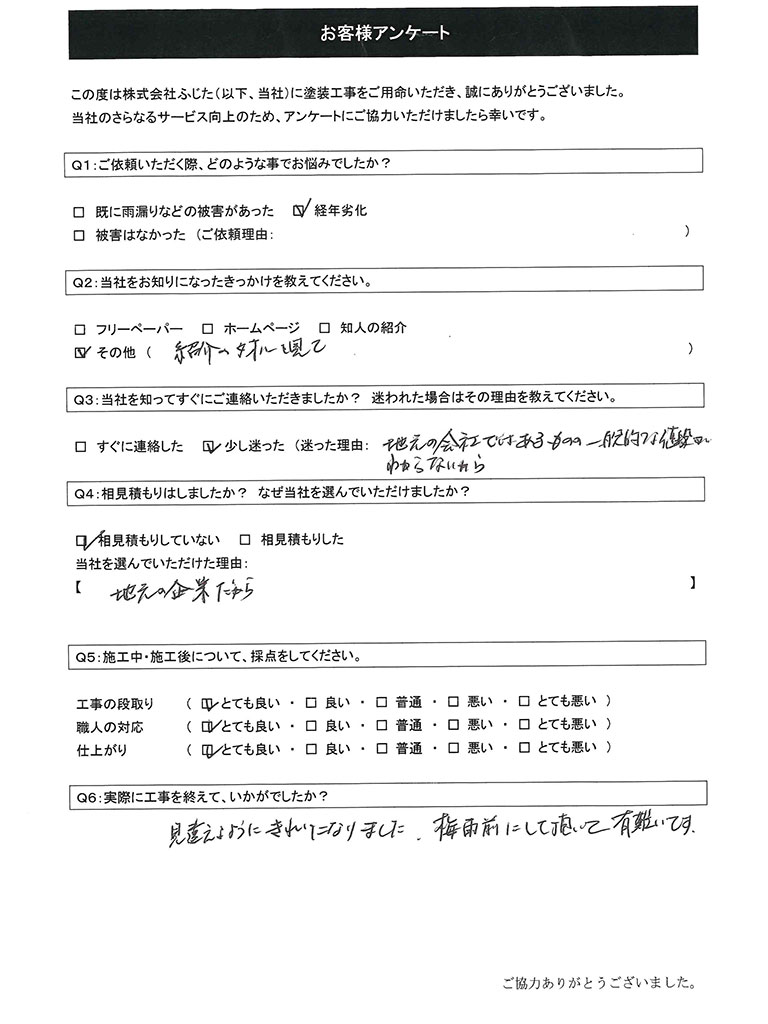 お客様アンケート
この度は株式会社ふじた(以下、当社)に塗装工事をご用命いただき、誠にありがとうございました。
当社のさらなるサービス向上のため、アンケートにご協力いただけましたら幸いです。
Q1:ご依頼いただく際、どのような事でお悩みでしたか?
□ 既に雨漏りなどの被害があった ☑ 経年劣化
□ 被害はなかった (ご依頼理由: )
Q2:当社をお知りになったきっかけを教えてください。
□ フリーペーパー □ ホームページ □ 知人の紹介
☑ その他 ( 紹介の を見て )
Q3:当社を知ってすぐにご連絡いただきましたか? 迷われた場合はその理由を教えてください。
□ すぐに連絡した ☑ 少し迷った (迷った理由: 地元の会社ではあるものの一般的な値段が
わからないから
Q4:相見積もりはしましたか? なぜ当社を選んでいただけましたか?
☑ 相見積もりしていない □ 相見積もりした
当社を選んでいただけた理由:
【 地元の企業だから 】
Q5:施工中・施工後について、採点をしてください。
工事の段取り ( ☑ とても良い ・ □ 良い ・ □ 普通 ・ □ 悪い ・ □ とても悪い )
職人の対応 ( ☑ とても良い ・ □ 良い ・ □ 普通 ・ □ 悪い ・ □ とても悪い )
仕上がり ( ☑ とても良い ・ □ 良い ・ □ 普通 ・ □ 悪い ・ □ とても悪い )
Q6:実際に工事を終えて、いかがでしたか?
見違えるようにきれいになりました。梅雨前にして頂いて有難いです。
ご協力ありがとうございました。